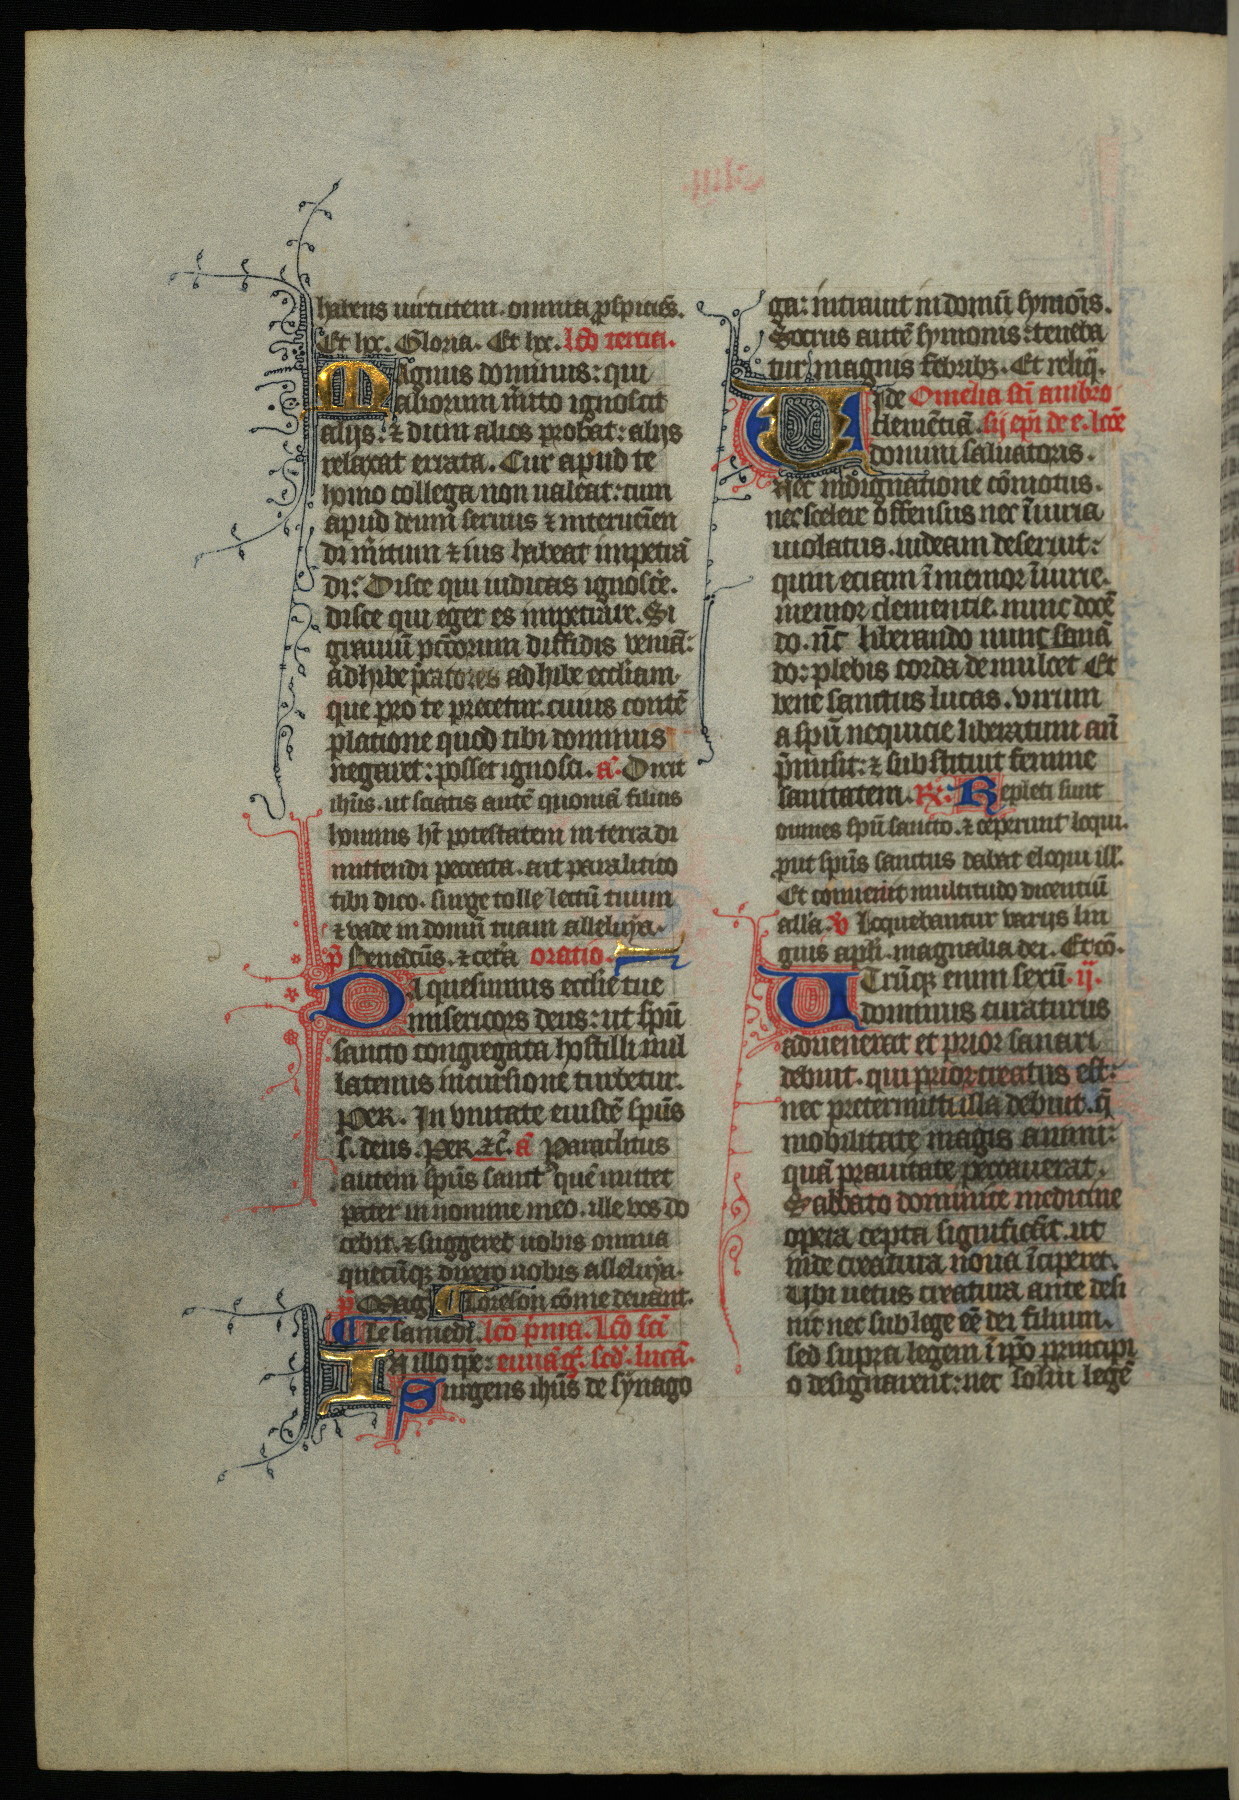 habens uirtutem. omnia ꝓspiciēs.
Et hec. Gloria. Et hec. lcō tercia.
Magnus dominus: qui
aliorum m̄ito ignoscit
alijs: ⁊ dum alios probat: alijs
relaxat errata. Cur apud te
homo collega non ualeat: cum
apud deum seruus ⁊ interueīen
di m̄itum ⁊ ius habeat impetrā
di: Disce qui iudicas ignosc̄e.
disce qui eger es impetrare. Si
grauiū pc̄corum diffidis veniā:
adhibe p̄catores adhibe eccliam.
que pro te precetur. cuius contē
platione quod tibi dominus
negaret: posset ignosci. a. Dixit
ihūs. ut sciatis autē quoniā filius
hominis ht̄ potestatem in terra di
mittendi peccata. ait paralitico
tibi dico. surge tolle lectū tuum
⁊ vade in domū tuam alleluya.
p̄ Benedc̄us. ⁊ cetā oratio.
Da quesumus ecclie tue
misericors deus: ut spū
sancto congregata hostili nul
latenus incursione turbetur.
PER. In vnitate eiusdē spūs
s. deus. PER. ⁊c̄. a Paraclitus
autem spūs sanct⁹ quē mittet
pater in nomine meo. ille vos do
cebit ⁊ suggeret uobis omnia
quecūqꝫ dixero uobis alleluya.
p̄ Mag. Loreson cōme deuant.
Le samedi. lcō p̄ma. Lcō scī
In illo tp̄r: euuāḡ. scd̄. lucā.
Surgens ihūs de synago
ga: intrauit in domū symoīs.
Socrus autē symonis: teneba
tur magnis febribꝫ. Et reliq̄.
Vide Omelia scī ambro
clemētiā. sij epī de e. lcōe
domini saluatoris.
Nec indignatione cōmotus.
nec scelere offensus nec īiuria
uiolatus. iudeam deseruit:
quin etiam īmemor īiurie.
memor clementie. nunc docē
do. nc̄ liberando nunc sanā
do: plebis corda demulcet Et
bene sanctus lucas. virum
a spū nequicie liberatum an̄
p̄misit: ⁊ substituit femine
sanitatem. R̄. Repleti sunt
omnes spū sancto. ⁊ ceperunt loqui.
put spūs sanctus dabat eloqui ill̄.
Et conuenit multitudo dicentiū
alla. v̄ Loquebantur varijs lin
guis apl̄i. magnalia dei. Et cō.
Utrūqꝫ enim sexū. ij.
dominus curaturus
aduenerat et prior sanari
debuit. qui prior creatus est:
nec pretermitti illa debuit. q̄
mobilitate magis animi:
quā prauitate peccauerat.
Sabbato dominice medicine
opera cepta significāt. ut
inde creatura noua īciperet.
Ubi uetus creatura ante desi
nit nec sub lege eē dei filium.
sed supra legem ī ipō principi
o designauerit: nec solui legē